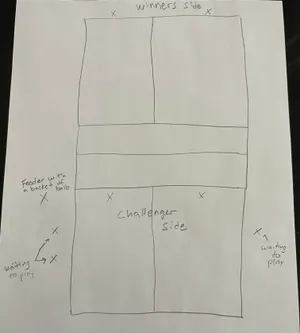 winners side
x x
Feeder with
a basket of balls
X
x x
challenger
side
x
x
waiting
to play
x
waiting
to
play